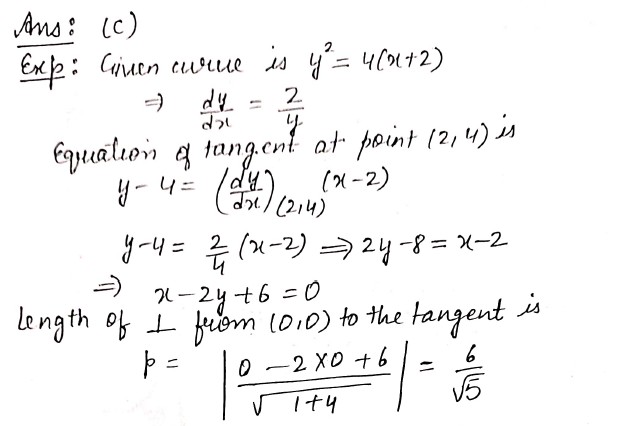 Ans : (C)
Exp : Given curve is y² = 4(x+2)
⇒ dy/dx = 2/y
Equation of tangent at point (2,4) is
y - 4 = (dy/dx)(2,4) (x-2)
y-4 = 2/4 (x-2) ⇒ 2y-8 = x-2
⇒ x-2y+6 = 0
Length of ⊥ from (0,0) to the tangent is
p = |0 - 2×0 + 6 / √1+4| = 6/√5